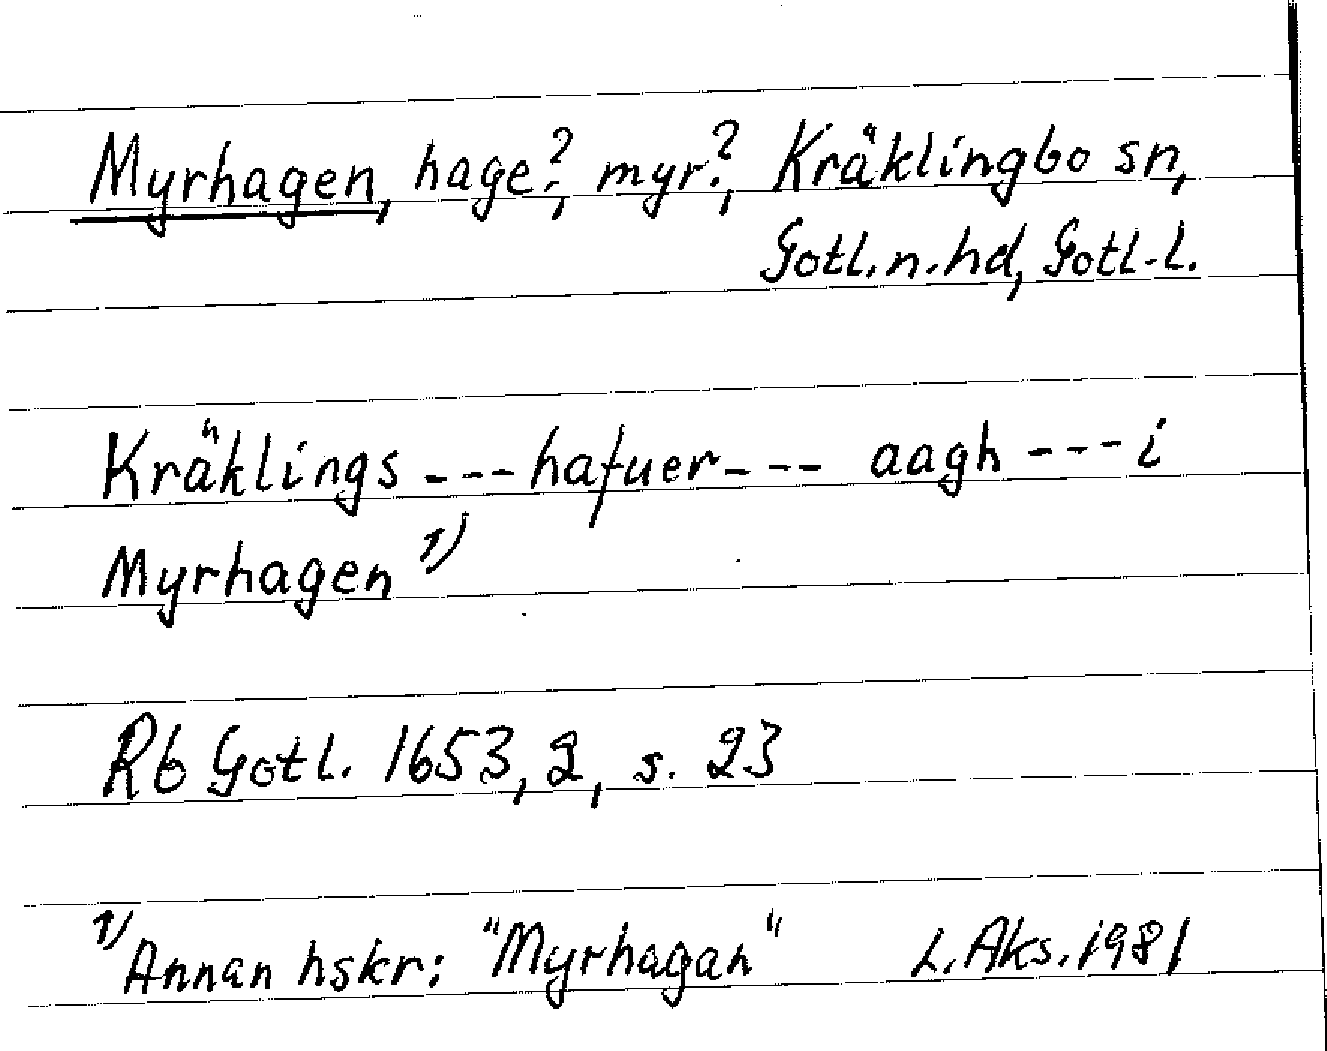 Myrhagen, hage?, myr?, Kräklingbo sn,
Gotl.n.hd, Gotl.l.
Kräklings --- hafuer --- aagh --- i
Myrhagen 1)
Rb Gotl. 1653, 2, s. 23
1) Annan hskr: "Myrhagan" L. Aks. 1981